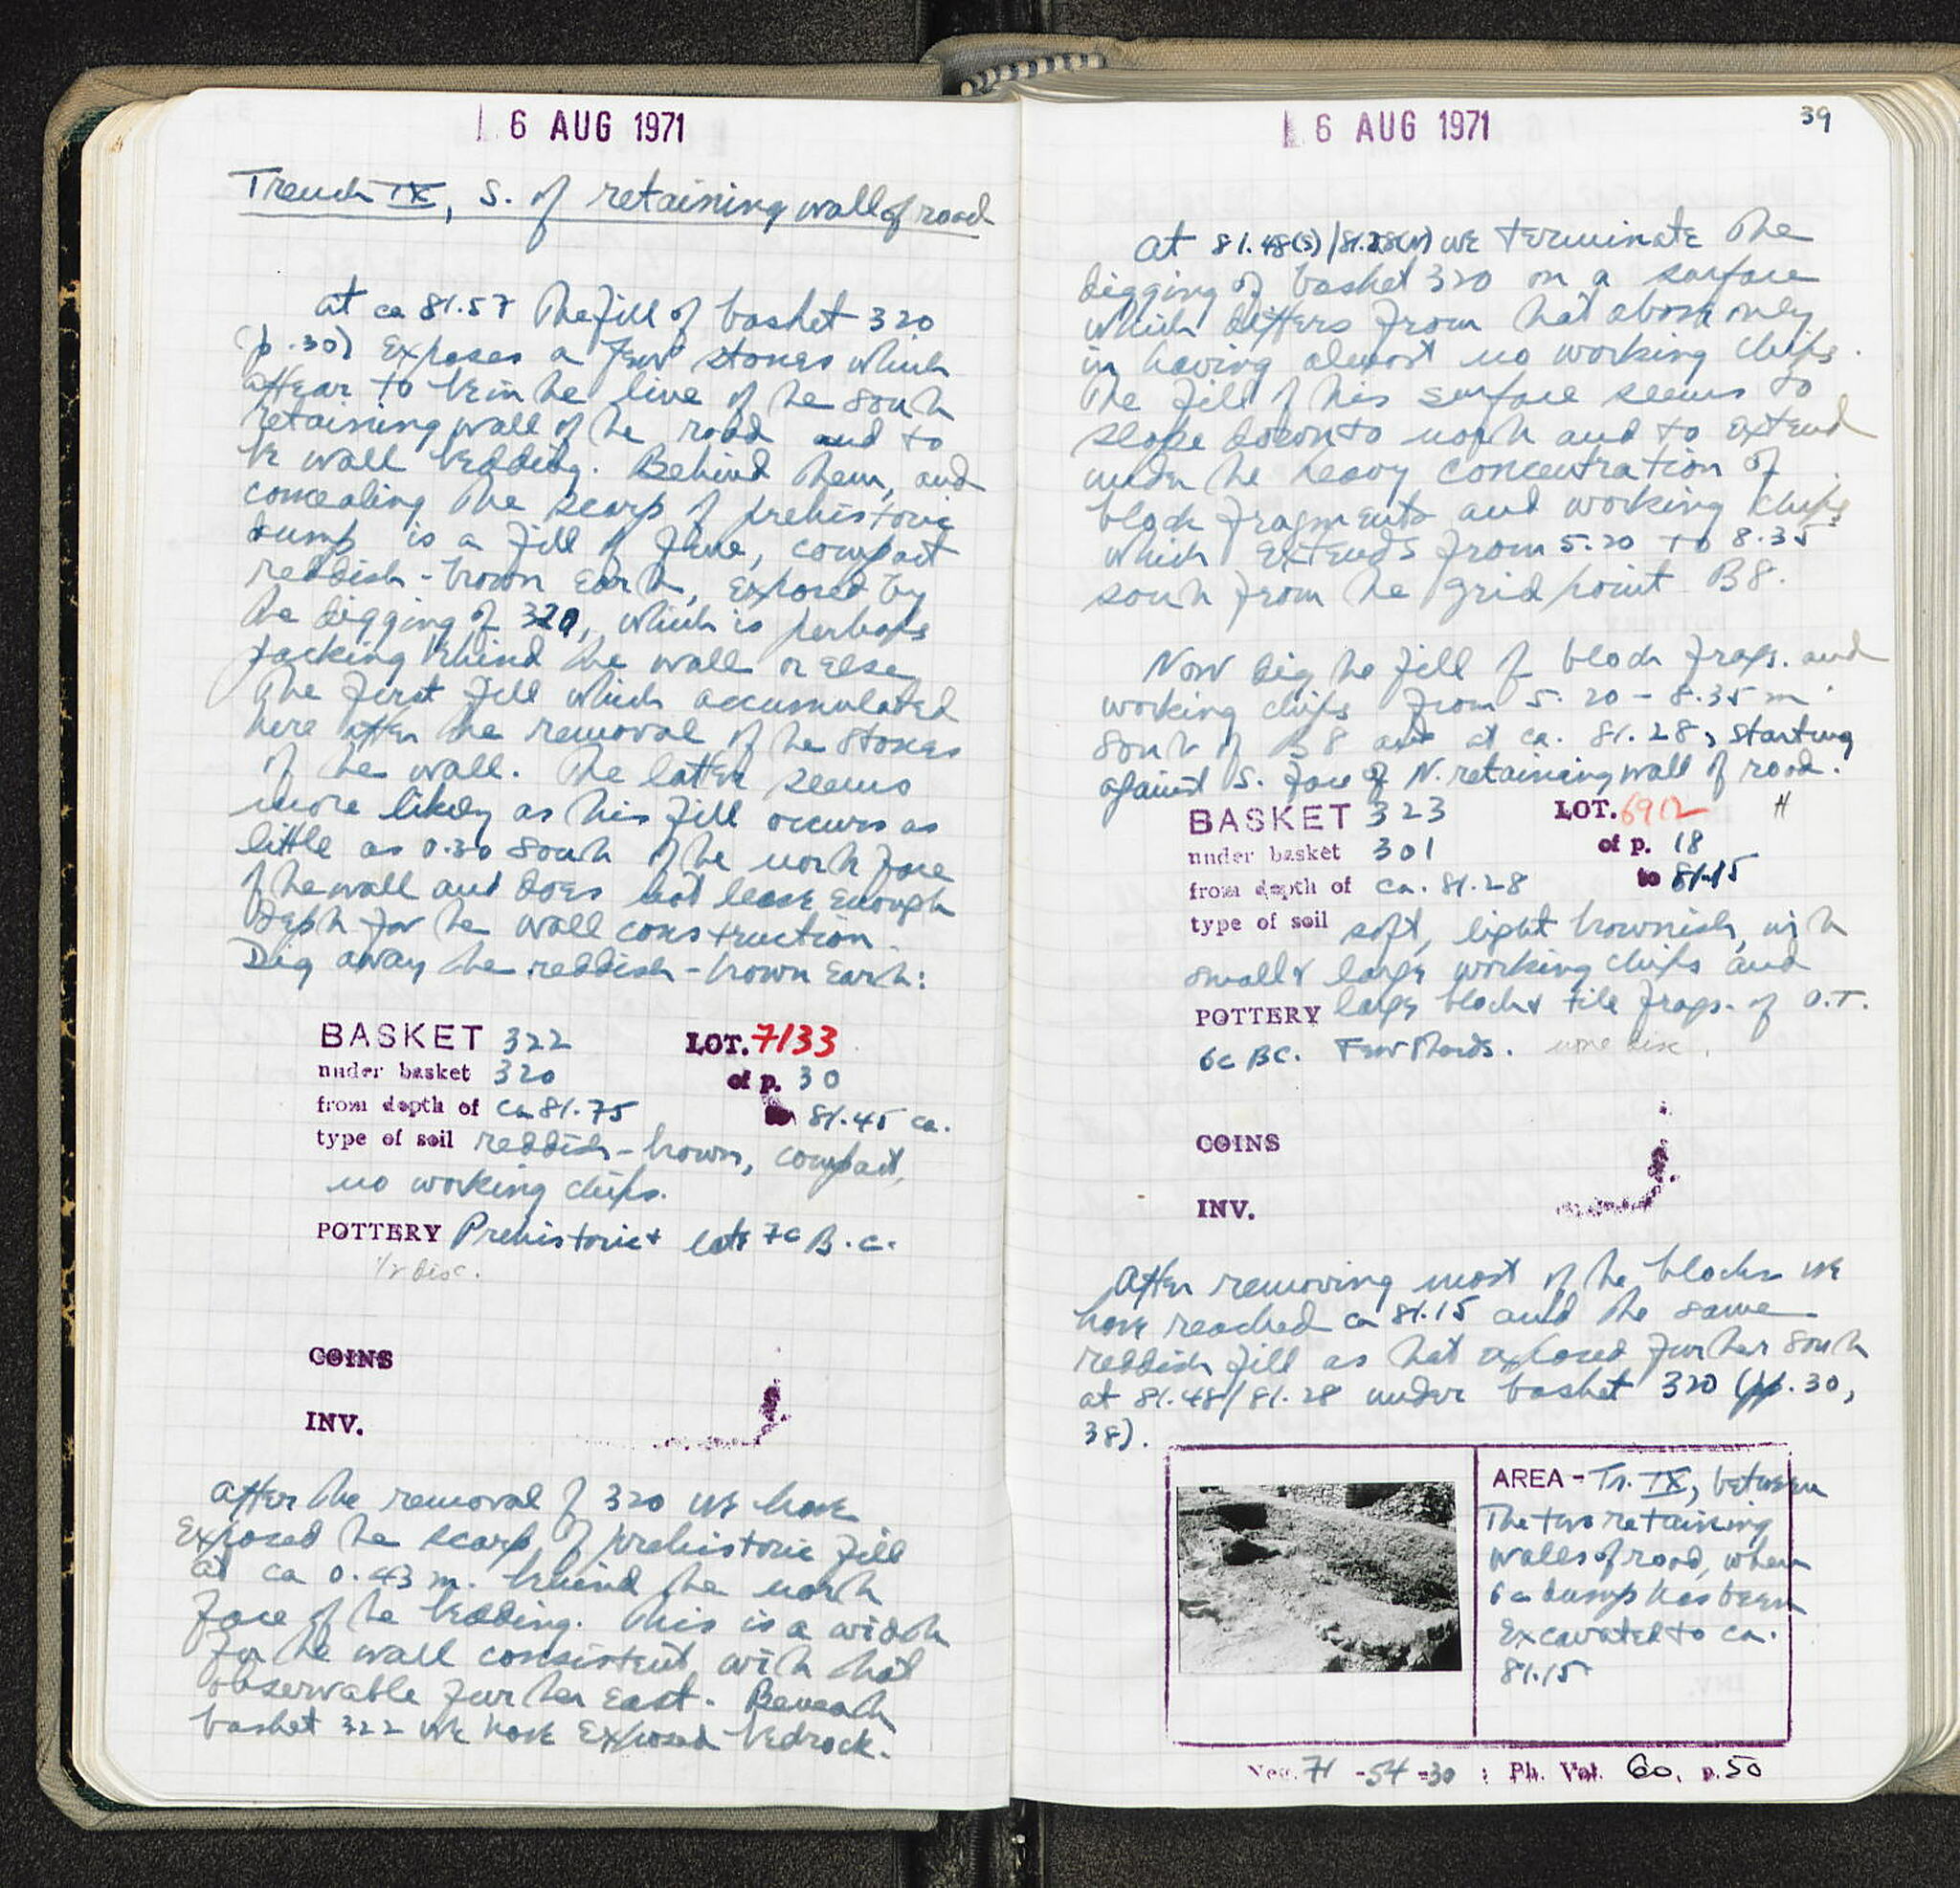 6 AUG 1971
Trench IX, S. of retaining wall of road
At ca 81.57 the fill of basket 320
(p. 30) exposes a few stones which
appear to be in the line of the south
retaining wall of the road and to
be wall bedding. Behind them, and
concealing the scarp of prehistoric
dump is a fill of fine, compact
reddish-brown earth, exposed by
the digging of 320, which is perhaps
packing behind the wall or else
the first fill which accumulated
here after the removal of the stones
of the wall. The latter seems
more likely as this fill occurs as
little as 0.30 south of the north face
of the wall and does not leave enough
depth for the wall construction.
Dig away the reddish-brown earth:
BASKET 322 LOT. 7133
under basket 320 of p. 30
from depth of ca 81.75 to 81.45 ca.
type of soil reddish-brown, compact,
no working chips.
POTTERY Prehistoric + late 7c B.C.
1/2 disc.
COINS
INV.
After the removal of 320 we have
exposed the scarp of prehistoric fill
at ca 0.43 m. behind the north
face of the bedding. This is a width
for the wall consistent with that
observable further east. Beneath
basket 322 we have exposed bedrock.
6 AUG 1971
39
At 81.48(S)/81.28(N) we terminate the
digging of basket 320 on a surface
which differs from that above only
in having almost no working chips.
The fill of this surface seems to
slope down to north and to extend
under the heavy concentration of
block fragments and working chips
which extends from 5.20 to 8.35
south from the grid point B8.
Now dig the fill of block frags. and
working chips from 5.20 - 8.35 m
south of B8 and at ca. 81.28, starting
against S. face of N. retaining wall of road.
BASKET 323 LOT. 6912 H
under basket 301 of p. 18
from depth of ca. 81.28 to 81.15
type of soil soft, light brownish, with
small & large working chips and
POTTERY large block & tile frags. of O.T.
6c BC. Few sherds. none disc.
COINS
INV.
After removing most of the blocks we
have reached ca 81.15 and the same
reddish fill as that exposed further south
at 81.48/81.28 under basket 320 (pp. 30,
38).
AREA - Tr. IX, between
the two retaining
walls of road, when
6c dump has been
excavated to ca.
81.15
Neg. 71 -54 -30 : Ph. Vol. 60, p. 50